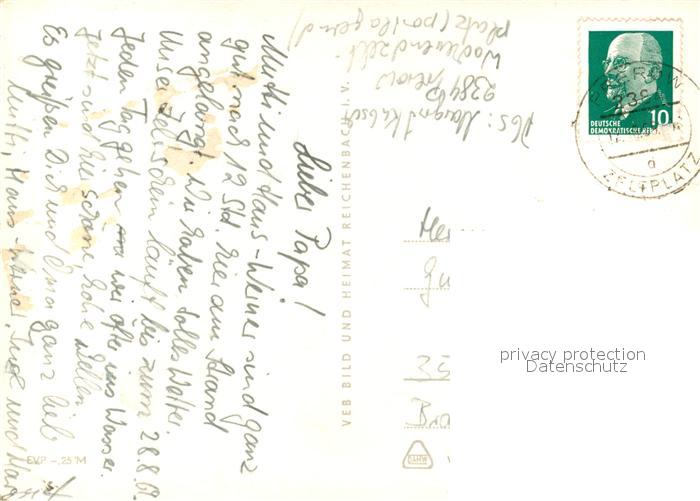 Lieber Papa!
Mutti und Hans-Werner sind ganz
gut nach 12 Std. hier am Strand
angelangt. Wir haben tolles Wetter.
Unser Zeltschein läuft bis zum 28.8.69.
Jeden Tag gehen wir öfter ins Wasser.
Jetzt sind hier schöne hohe Wellen
Es grüßen Dich und Oma ganz lieb
Mutti, Hans-Werner, und
Abs: Margrit
2384
Wochenendzelt-
platz (postlagernd)
VEB BILD UND HEIMAT REICHENBACH I. V.
EVP -,25 M
DEUTSCHE
DEMOKRATISCHE REP
10
ZELTPLATZ
a
privacy protection
Datenschutz